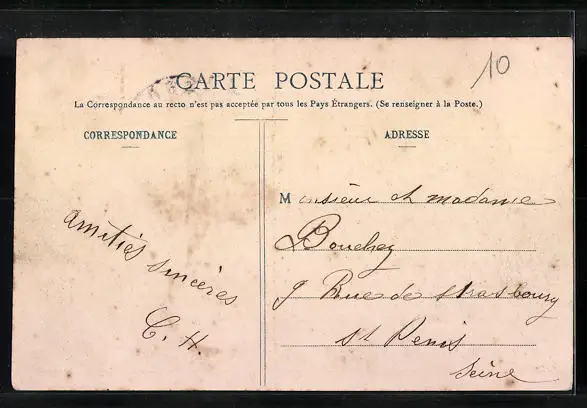 10
CARTE POSTALE
La Correspondance au recto n'est pas acceptée par tous les Pays Étrangers. (Se renseigner à la Poste.)
CORRESPONDANCE
amitiés sincères
C. H.
ADRESSE
Monsieur et madame
Bouchez
9 Rue de Strasbourg
St Denis
Seine